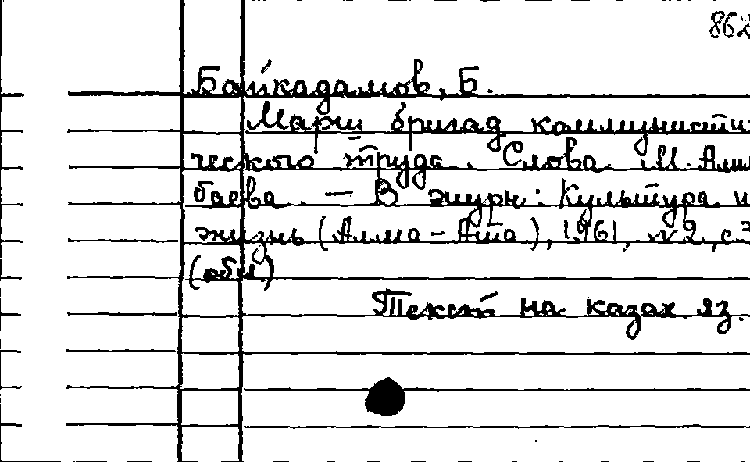 862
Байкадамов, Б.
Марш бригад коммунисти-
ческого труда. Слова М. Алим
баева. — В журн: Культура и
жизнь (Алма-Ата), 1961, №2, с.3
(обл)
Текст на казах. яз.